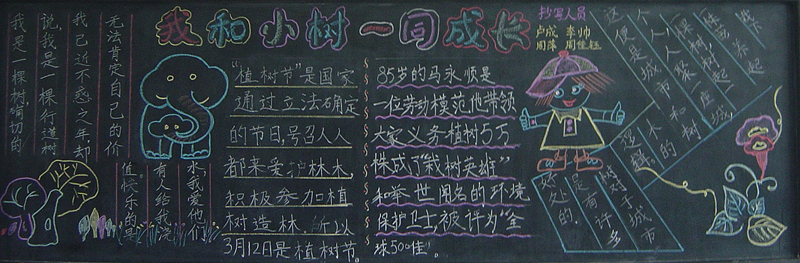 我和小树一同成长
抄写人员
卢成 李帅
周萍 周佳钰
我是一棵树,确切的
说,我是一棵行道树
我已近不惑之年却
无法肯定自己的价
值,快乐的是
有人给我浇
水,我爱他们
"植树节"是国家
通过立法确定
的节日,号召人人
都来爱护林木,
积极参加植
树造林,所以
3月12日是植树节。
85岁的马永顺是
一位劳动模范,他带领
大家义务植树5万
株成了"栽树英雄"
和举世闻名的环境
保护卫士,被评为"全
球500佳"。
树对于城市
定有许多
好处的.